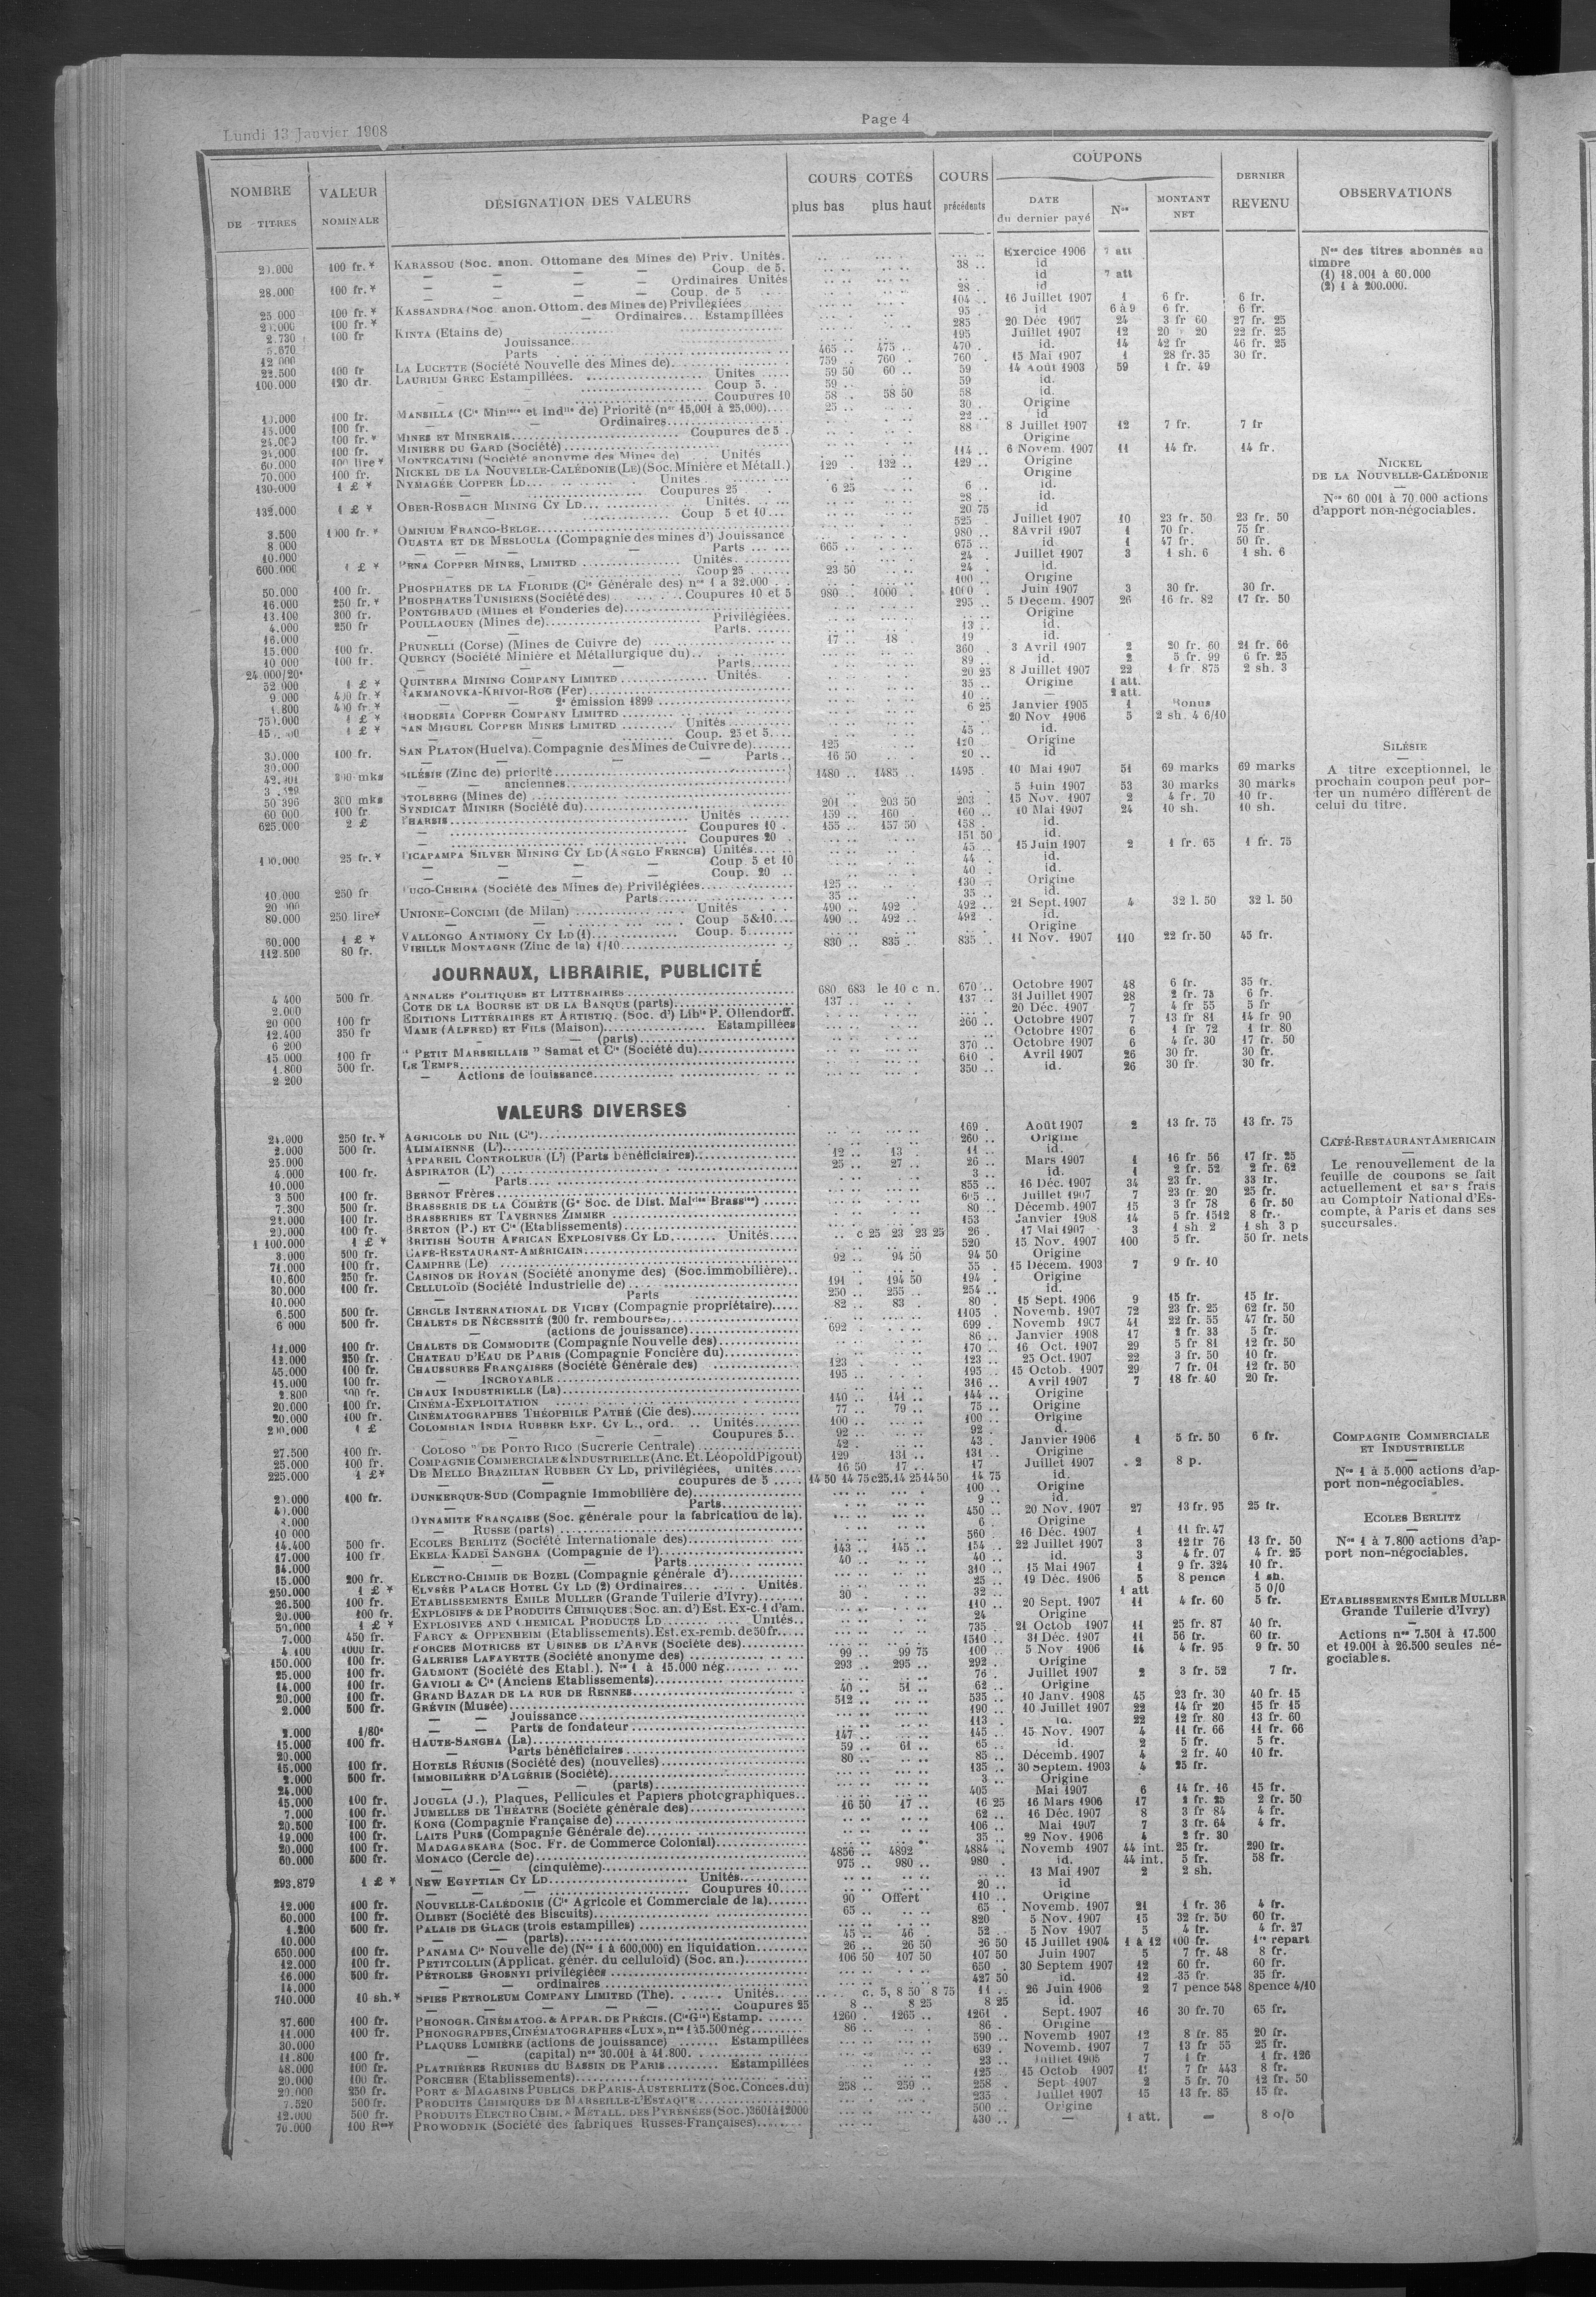 Lundi 13 Janvier 1908
Page 4
NOMBRE DE TITRES
VALEUR NOMINALE
DÉSIGNATION DES VALEURS
COURS COTÉS
plus bas plus haut
COURS précédents
COUPONS
DATE du dernier payé
Nos
MONTANT NET
DERNIER REVENU
OBSERVATIONS
100 fr.* KARASSOU (Soc. anon. Ottomane des Mines de) Priv. Unités. Exercice 1906 7 att
— — — Coup. de 5. 38 .. id
28.000 100 fr.* — — — Ordinaires Unités id 7 att
— — — Coup. de 5 28 . id
25 000 100 fr.* KASSANDRA (Soc. anon. Ottom. des Mines de) Privilégiées 104 .. 16 Juillet 1907 1 6 fr. 6 fr.
100 fr.* — — Ordinaires.. Estampillées 95 . id 6 à 9 6 fr. 6 fr.
2.730 100 fr KINTA (Etains de) 285 20 Déc 1907 24 3 fr 60 27 fr. 25
Jouissance 195 Juillet 1907 12 20 20 22 fr. 25
Parts 465 .. 475 .. 470 . id. 14 42 fr 46 fr. 25
22.500 100 fr LA LUCETTE (Société Nouvelle des Mines de) 759 .. 760 . 760 . 15 Mai 1907 1 28 fr. 35 30 fr.
100.000 120 dr. LAURIUM GREC Estampillées. Unités 59 50 60 .. 59 14 Août 1903 59 1 fr. 49
Coup 5. 59 .. 59 id.
Coupures 10 58 . 58 50 58 id.
100 fr. MANSILLA (Cie Minière et Indlle de) Priorité (nos 15,001 à 25,000) 25 .. 30 . Origine
15.000 100 fr. — — Ordinaires 22 .. id
100 fr.* MINES ET MINERAIS Coupures de 5 . 88 8 Juillet 1907 12 7 fr. 7 fr
100 fr. MINIERE DU GARD (Société) Origine
60.000 100 lire* MONTECATINI (Société anonyme des Mines de) Unités 114 .. 6 Novem. 1907 11 14 fr. 14 fr.
70.000 100 fr. NICKEL DE LA NOUVELLE-CALÉDONIE (LE) (Soc. Minière et Métall.) 129 . 132 .. 129 .. Origine
130.000 1 £ * NYMAGÉE COPPER LD Unités . Origine
— Coupures 25 6 25 6 . id.
132.000 1 £ * OBER-ROSBACH MINING CY LD Unités. 28 . id.
— Coup 5 et 10 20 75 id
3.500 1000 fr.* OMNIUM FRANCO-BELGE 525 Juillet 1907 10 23 fr. 50 23 fr. 50
8.000 OUASTA ET DE MESLOULA (Compagnie des mines d') Jouissance 980 .. 8 Avril 1907 1 70 fr. 75 fr.
10.000 — — — Parts 665 .. 675 .. id 1 47 fr. 50 fr.
600.000 1 £ * PENA COPPER MINES, LIMITED Unités. 24 . Juillet 1907 3 1 sh. 6 1 sh. 6
Coup 25 23 50 24 . id.
50.000 100 fr. PHOSPHATES DE LA FLORIDE (Cie Générale des) nos 1 à 32.000 . 100 .. Origine
16.000 250 fr.* PHOSPHATES TUNISIENS (Société des) Coupures 10 et 5 980 .. 1000 . 1000 . Juin 1907 3 30 fr. 30 fr.
13.100 300 fr. PONTGIBAUD (Mines et Fonderies de) 295 .. 5 Decem. 1907 26 16 fr. 82 17 fr. 50
4.000 250 fr POULLAOUEN (Mines de) Privilégiées. Origine
16.000 — — Parts. 13 .. id.
15.000 100 fr. PRUNELLI (Corse) (Mines de Cuivre de) 17 .. 18 . 19 id.
10 000 100 fr. QUERCY (Société Minière et Métallurgique du) 360 . 3 Avril 1907 2 20 fr. 60 21 fr. 66
24 000/20e — — Parts 89 .. id. 2 5 fr. 99 6 fr. 25
52 000 1 £ * QUINTERA MINING COMPANY LIMITED Unités. 20 25 8 Juillet 1907 22 1 fr. 875 2 sh. 3
9 000 400 fr.* RAKMANOVKA-KRIVOI-ROG (Fer) 35 .. Origine 1 att.
1.800 400 fr.* — — 2e émission 1899 10 .. — 2 att.
1 £ * RHODESIA COPPER COMPANY LIMITED 6 25 Janvier 1905 1 Bonus
1 £ * SAN MIGUEL COPPER MINES LIMITED Unités 20 Nov 1906 5 2 sh. 4 6/10
Coup. 25 et 5 45 .. id.
30.000 100 fr. SAN PLATON (Huelva). Compagnie des Mines de Cuivre de) 125 120 .. Origine
30.000 — — — Parts .. 16 50 20 .. id
300 mks SILÉSIE (Zinc de) priorité 1480 .. 1485 .. 1495 10 Mai 1907 51 69 marks 69 marks
— — anciennes
50 396 300 mks STOLBERG (Mines de) 5 Juin 1907 53 30 marks 30 marks
60 000 100 fr SYNDICAT MINIER (Société du) 201 203 50 203 . 15 Nov. 1907 2 4 fr. 70 10 fr.
625.000 2 £ THARSIS Unités 159 .. 160 . 160 .. 10 Mai 1907 24 10 sh. 10 sh.
Coupures 10 . 155 .. 157 50 158 . id.
Coupures 20 . 151 50 id.
25 fr.* TICAPAMPA SILVER MINING CY LD (ANGLO FRENCH) Unités 45 .. 15 Juin 1907 2 1 fr. 65 1 fr. 75
— — — Coup. 5 et 10 44 . id.
— — — Coup. 20 .. 40 . id.
10.000 250 fr TUCO-CHEIRA (Société des Mines de) Privilégiées 125 .. 130 Origine
— Parts 35 .. 35 .. id.
80.000 250 lire* UNIONE-CONCIMI (de Milan) Unités 490 .. 492 . 492 .. 21 Sept. 1907 4 32 l. 50 32 l. 50
Coup 5&10 490 .. 492 .. 492 . id.
60.000 1 £ * VALLONGO ANTIMONY CY LD (1) Coup. 5 Origine
112.500 80 fr. VIEILLE MONTAGNE (Zinc de la) 1/10 830 .. 835 . 835 . 11 Nov. 1907 110 22 fr. 50 45 fr.
JOURNAUX, LIBRAIRIE, PUBLICITÉ
4 400 500 fr ANNALES POLITIQUES ET LITTÉRAIRES 680 683 le 10 c n. 670 .. Octobre 1907 48 6 fr. 35 fr.
2.000 COTE DE LA BOURSE ET DE LA BANQUE (parts) 137 .. 137 .. 31 Juillet 1907 28 2 fr. 73 6 fr.
20 000 100 fr EDITIONS LITTÉRAIRES ET ARTISTIQ. (Soc. d') Libie P. Ollendorff. 20 Déc. 1907 7 4 fr 55 5 fr
12.400 350 fr MAME (ALFRED) ET FILS (Maison) Estampillées 260 .. Octobre 1907 7 13 fr 81 14 fr 90
6 200 — — (parts) Octobre 1907 6 1 fr 72 1 fr. 80
15 000 100 fr " PETIT MARSEILLAIS " Samat et Cie (Société du) 370 .. Octobre 1907 6 4 fr. 30 17 fr. 50
1.800 500 fr. LE TEMPS 610 . Avril 1907 26 30 fr. 30 fr.
2 200 — Actions de jouissance 350 .. id. 26 30 fr. 30 fr.
VALEURS DIVERSES
24.000 250 fr.* AGRICOLE DU NIL (Cie) 169 . Août 1907 2 13 fr. 75 13 fr. 75
2.000 500 fr. ALIMAIENNE (L') 260 .. Origine
25.000 APPAREIL CONTROLEUR (L') (Parts bénéficiaires) 12 .. 13 . 11 .. id.
4.000 100 fr. ASPIRATOR (L') 25 .. 27 .. 26 .. Mars 1907 1 16 fr. 56 17 fr. 25
10.000 — Parts 3 .. id. 1 2 fr. 52 2 fr. 62
3 500 100 fr. BERNOT Frères 855 .. 16 Déc. 1907 34 23 fr. 33 fr.
7.300 500 fr. BRASSERIE DE LA COMÈTE (Ge Soc. de Dist. Malries Brassies) Juillet 1907 7 23 fr 20 25 fr.
100 fr. BRASSERIES ET TAVERNES ZIMMER 80 .. Décemb. 1907 15 3 fr 78 6 fr. 50
100 fr. BRETON (P.) ET Cie (Etablissements) 153 Janvier 1908 14 5 fr. 1512 8 fr.
1 100.000 1 £ * BRITISH SOUTH AFRICAN EXPLOSIVES CY LD Unités .. c 25 23 23 25 26 . 17 Mai 1907 3 1 sh 2 1 sh 3 p
3.000 500 fr. CAFÉ-RESTAURANT-AMÉRICAIN 520 15 Nov. 1907 100 5 fr. 50 fr. nets
71.000 100 fr. CAMPHRE (Le) 92 .. 94 50 94 50 Origine
10.600 250 fr. CASINOS DE ROYAN (Société anonyme des) (Soc. immobilière) 35 . 15 Décem. 1903 7 9 fr. 10
30.000 100 fr. CELLULOÏD (Société Industrielle de) 191 . 194 50 194 . Origine
10.000 — Parts 250 .. 255 .. 254 .. id.
6.500 500 fr. CERCLE INTERNATIONAL DE VICHY (Compagnie propriétaire) 82 .. 83 . 80 . 15 Sept. 1906 9 15 fr. 15 fr.
6 000 500 fr. CHALETS DE NÉCESSITÉ (200 fr. remboursés) 1105 . Novemb. 1907 72 23 fr. 25 62 fr. 50
— (actions de jouissance) 692 . 699 . Novemb 1907 41 22 fr. 55 47 fr. 50
11.000 100 fr. CHALETS DE COMMODITE (Compagnie Nouvelle des) 86 .. Janvier 1908 17 2 fr. 33 5 fr.
12.000 250 fr. CHATEAU D'EAU DE PARIS (Compagnie Foncière du) 170 .. 16 Oct. 1907 29 5 fr 81 12 fr. 50
45.000 100 fr. CHAUSSURES FRANÇAISES (Société Générale des) 123 . 123 .. 25 Oct. 1907 22 3 fr. 50 10 fr.
15.000 100 fr. — INCROYABLE 195 .. 195 .. 15 Octob. 1907 29 7 fr. 01 12 fr. 50
2.800 500 fr. CHAUX INDUSTRIELLE (La) 316 .. Avril 1907 7 18 fr. 40 20 fr.
20.000 100 fr. CINÉMA-EXPLOITATION 140 .. 141 .. 144 .. Origine
20.000 100 fr. CINÉMATOGRAPHES THÉOPHILE PATHÉ (Cie des) 77 .. 79 .. 75 .. Origine
200.000 1 £ COLOMBIAN INDIA RUBBER EXP. CY L., ord. Unités 100 .. 100 .. Origine
— — Coupures 5 92 .. 92 . d.
27.500 100 fr. COLOSO " DE PORTO RICO (Sucrerie Centrale) 42 . 43 . Janvier 1906 1 5 fr. 50 6 fr.
25.000 100 fr. COMPAGNIE COMMERCIALE & INDUSTRIELLE (Anc. Et. Léopold Pigout) 129 131 .. 131 .. Origine
225.000 1 £* DE MELLO BRAZILIAN RUBBER CY LD, privilégiées, unités 16 50 17 .. 17 Juillet 1907 2 8 p.
— — coupures de 5 14 50 14 75 c25.14 25 14 50 14 75 id.
100 fr. DUNKERQUE-SUD (Compagnie Immobilière de) 100 .. Origine
— — Parts 9 .. id.
DYNAMITE FRANÇAISE (Soc. générale pour la fabrication de la). 450 .. 20 Nov. 1907 27 13 fr. 95 25 fr.
10 000 — RUSSE (parts) 6 . Origine
14.400 500 fr. ECOLES BERLITZ (Société Internationale des) 560 . 16 Déc. 1907 1 11 fr. 47
17.000 100 fr. EKELA KADEÏ SANGHA (Compagnie de l') 143 .. 145 .. 154 .. 22 Juillet 1907 3 12 fr 76 13 fr. 50
34.000 — — Parts 40 .. 40 .. id. 3 4 fr. 07 4 fr. 25
15.000 200 fr. ELECTRO-CHIMIE DE BOZEL (Compagnie générale d') 310 .. 15 Mai 1907 1 9 fr. 324 10 fr.
250.000 1 £ * ELYSÉE PALACE HOTEL CY LD (2) Ordinaires Unités. 25 .. 19 Déc. 1906 5 8 pence 1 sh.
26.500 100 fr. ETABLISSEMENTS EMILE MULLER (Grande Tuilerie d'Ivry) 30 . 32 .. 1 att 5 0/0
20.000 100 fr. EXPLOSIFS & DE PRODUITS CHIMIQUES (Soc. an. d') Est. Ex-c. 1 d'am. 110 .. 20 Sept. 1907 11 4 fr. 60 5 fr.
50.000 1 £ * EXPLOSIVES AND CHEMICAL PRODUCTS LD Unités. 24 Origine
7.000 450 fr. FARCY & OPPENHEIM (Etablissements). Est. ex-remb. de 50 fr. 735 . 21 Octob 1907 11 25 fr. 87 40 fr.
4.100 1000 fr. FORCES MOTRICES ET USINES DE L'ARVE (Société des) 1510 .. 31 Déc. 1907 11 56 fr. 60 fr.
150.000 100 fr. GALERIES LAFAYETTE (Société anonyme des) 99 .. 99 75 100 .. 5 Nov. 1906 14 4 fr. 95 9 fr. 50
25.000 100 fr. GAUMONT (Société des Etabl.). Nos 1 à 15.000 nég. 293 .. 295 .. 292 . Origine
14.000 100 fr. GAVIOLI & Cie (Anciens Etablissements) 76 . Juillet 1907 2 3 fr. 52 7 fr.
20.000 100 fr. GRAND BAZAR DE LA RUE DE RENNES 40 .. 51 .. 62 .. Origine
2.000 500 fr. GRÉVIN (Musée) 512 .. 535 .. 10 Janv. 1908 45 23 fr. 30 40 fr. 15
— — Jouissance 190 .. 10 Juillet 1907 22 14 fr 20 15 fr. 15
2.000 1/80e — — Parts de fondateur 113 . id. 22 12 fr. 80 13 fr. 60
15.000 100 fr. HAUTE-SANGHA (La) 147 .. 145 .. 15 Nov. 1907 4 11 fr. 66 11 fr. 66
20.000 — Parts bénéficiaires 59 .. 61 .. 65 .. id. 2 5 fr. 5 fr.
15.000 100 fr. HOTELS RÉUNIS (Société des) (nouvelles) 80 .. 85 .. Décemb. 1907 4 2 fr. 40 10 fr.
2.000 500 fr. IMMOBILIÈRE D'ALGÉRIE (Société) 135 .. 30 septem. 1903 4 25 fr.
24.000 — — (parts) 3 .. Origine
15.000 100 fr. JOUGLA (J.), Plaques, Pellicules et Papiers photographiques 405 Mai 1907 6 14 fr. 16 15 fr.
7.000 100 fr. JUMELLES DE THÉATRE (Société générale des) 16 50 17 .. 16 25 16 Mars 1906 17 2 fr. 25 2 fr. 50
20.500 100 fr. KONG (Compagnie Française de) 62 .. 16 Déc. 1907 8 3 fr 84 4 fr.
19.000 100 fr. LAITS PURS (Compagnie Générale de) 106 .. Mai 1907 7 3 fr. 64 4 fr.
20.000 100 fr. MADAGASKARA (Soc. Fr. de Commerce Colonial) 35 .. 29 Nov. 1906 4 2 fr. 30
60.000 500 fr. MONACO (Cercle de) 4856 .. 4892 4884 . Novemb 1907 44 int. 25 fr. 290 fr.
— — (cinquième) 975 .. 980 .. 980 . id. 44 int. 5 fr. 58 fr.
293.879 1 £ * NEW EGYPTIAN CY LD Unités 13 Mai 1907 2 2 sh.
— — Coupures 10 20 .. id
12.000 100 fr. NOUVELLE-CALÉDONIE (Cie Agricole et Commerciale de la) 90 Offert 110 .. Origine
60.000 100 fr. OLIBET (Société des Biscuits) 65 .. 65 . Novemb. 1907 21 1 fr. 36 4 fr.
1.200 500 fr. PALAIS DE GLACE (trois estampilles) 820 5 Nov. 1907 15 32 fr. 50 60 fr.
10.000 — — (parts) 45 .. 46 . 52 .. 5 Nov 1907 5 4 fr. 4 fr. 27
650.000 100 fr. PANAMA Cie Nouvelle de) (Nos 1 à 600,000) en liquidation 26 .. 26 50 26 50 15 Juillet 1904 1 à 12 100 fr. 1re répart
12.000 100 fr. PETITCOLLIN (Applicat. génér. du celluloïd) (Soc. an.) 106 50 107 50 107 50 Juin 1907 5 7 fr. 48 8 fr.
16.000 500 fr. PÉTROLES GROSNYI privilégiées 650 . 30 Septem 1907 12 60 fr. 60 fr.
14.000 — ordinaires 427 50 id. 12 35 fr. 35 fr.
710.000 10 sh.* SPIES PETROLEUM COMPANY LIMITED (The). Unités c. 5, 8 50 8 75 11 .. 26 Juin 1906 2 7 pence 548 8pence 4/10
Coupures 25 8 .. 8 25 8 25 id.
37.600 100 fr. PHONOGR. CINÉMATOG. & APPAR. DE PRÉCIS. (Cie Gle) Estamp. 1260 . 1265 .. 1261 . Sept. 1907 16 30 fr. 70 65 fr.
11.000 100 fr. PHONOGRAPHES, CINÉMATOGRAPHES «LUX», nos 1 à 5.500 nég. 86 .. 86 . Origine
30.000 PLAQUES LUMIÈRE (actions de jouissance) Estampillées 590 .. Novemb 1907 12 8 fr. 85 20 fr.
11.800 100 fr. — (capital) nos 30.001 à 41.800. 639 . Novemb. 1907 7 13 fr 55 25 fr.
48.000 100 fr. PLATRIÈRES REUNIES DU BASSIN DE PARIS Estampillées 23 .. Juillet 1905 7 1 fr 1 fr. 126
20.000 100 fr. PORCHER (Etablissements) 125 15 Octob 1907 7 fr 443 8 fr.
250 fr. PORT & MAGASINS PUBLICS DE PARIS-AUSTERLITZ (Soc. Conces. du) 258 .. 259 .. 258 . Sept 1907 2 5 fr. 70 12 fr. 50
7.520 500 fr. PRODUITS CHIMIQUES DE MARSEILLE-L'ESTAQUE 235 . Juillet 1907 15 13 fr. 85 15 fr.
12.000 500 fr. PRODUITS ELECTRO CHIM. & METALL. DES PYRÉNÉES (Soc.) 3601 à 12000 500 .. Origine
70.000 100 Res* PROWODNIK (Société des fabriques Russes-Françaises) 430 .. — 1 att. — 8 o/o
Nos des titres abonnés au
timbre
(1) 18.001 à 60.000
(2) 1 à 200.000.
NICKEL
DE LA NOUVELLE-CALÉDONIE
Nos 60 001 à 70 000 actions
d'apport non-négociables.
SILÉSIE
A titre exceptionnel, le
prochain coupon peut por-
ter un numéro différent de
celui du titre.
CAFÉ-RESTAURANT AMERICAIN
Le renouvellement de la
feuille de coupons se fait
actuellement et sans frais
au Comptoir National d'Es-
compte, à Paris et dans ses
succursales.
COMPAGNIE COMMERCIALE
ET INDUSTRIELLE
Nos 1 à 5.000 actions d'ap-
port non-négociables.
ECOLES BERLITZ
Nos 1 à 7.800 actions d'ap-
port non-négociables.
ETABLISSEMENTS EMILE MULLER
Grande Tuilerie d'Ivry)
Actions nos 7.501 à 17.500
et 19.001 à 26.500 seules né-
gociables.